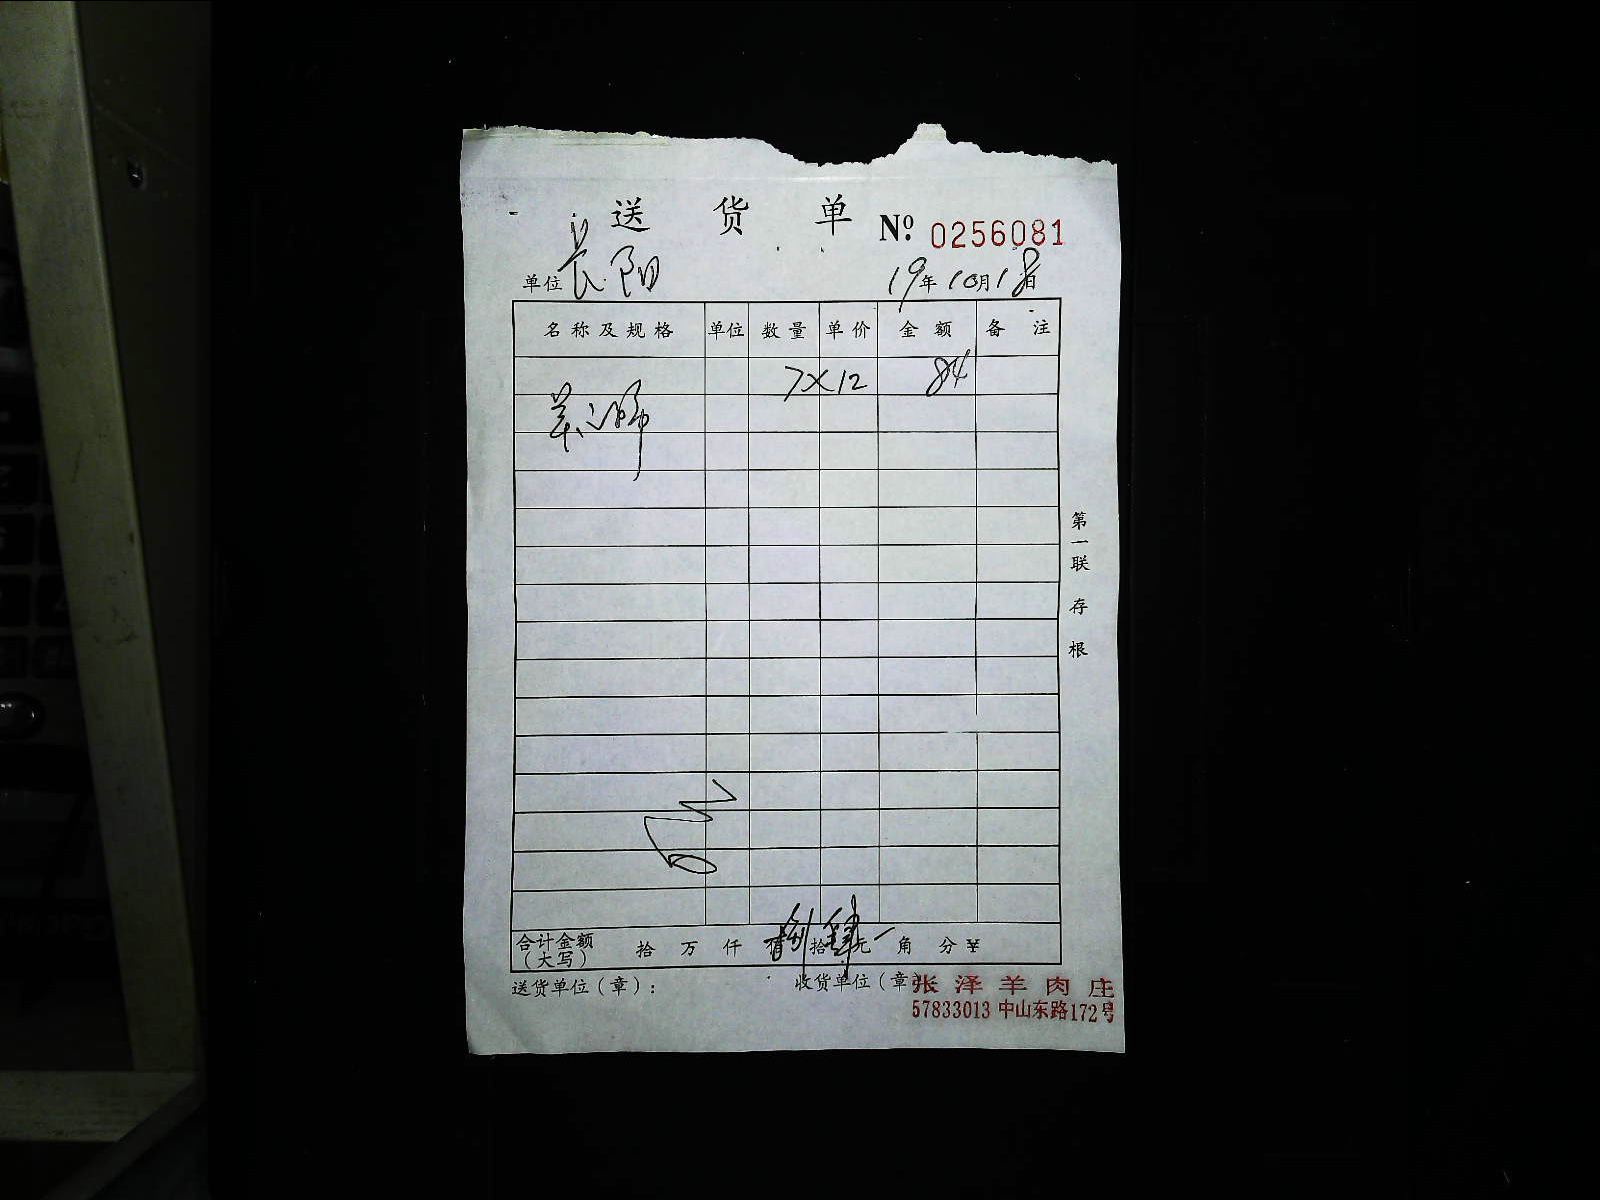 送货单 Nº: 0256081
单位 长阳 19年10月18日
名称及规格 单位 数量 单价 金额 备注
7×12 84
羊
合计金额（大写） 拾 万 仟 佰捌拾肆元 角 分 ¥
送货单位（章）： 收货单位（章）
张泽羊肉庄
57833013 中山东路172号
第一联 存根